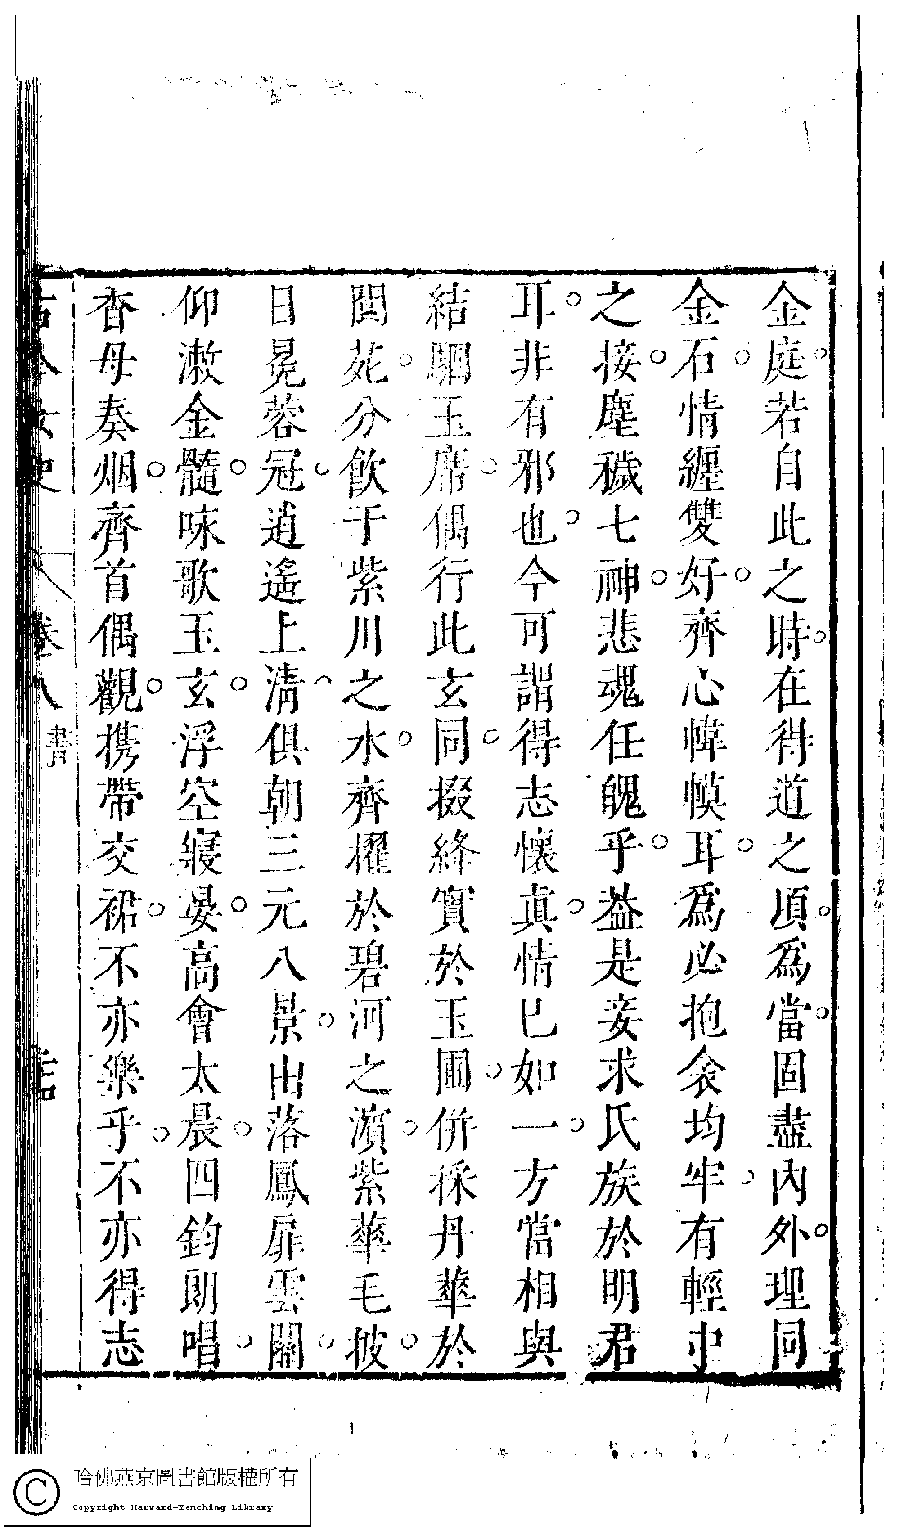 金庭若自此之時在得道之頃爲當固盡內外理同
金石情纒雙好齊心幃幙耳爲必抱衾均牢有輕中
之接塵穢七神悲魂任䰟乎益是妾求氏族於明君
耳非有邪也今可謂得志懷眞情已如一方當相與
結駟玉庿偶行此玄同掇絳實於玉圃併採丹華於
閬苑分飲于紫川之水齊擢於碧河之濱紫華毛帔
日冕蓉冠逍遙上淸俱朝三元八景出落鳳扉雲關
仰漱金髓咏歌玉玄浮空寢晏高會太晨四鈞朗唱
杳母奏烟齊首偶觀携帶交裙不亦樂乎不亦得志
古今女史 卷八 書
哈佛燕京圖書館版權所有
Copyright Harvard-Yenching Library